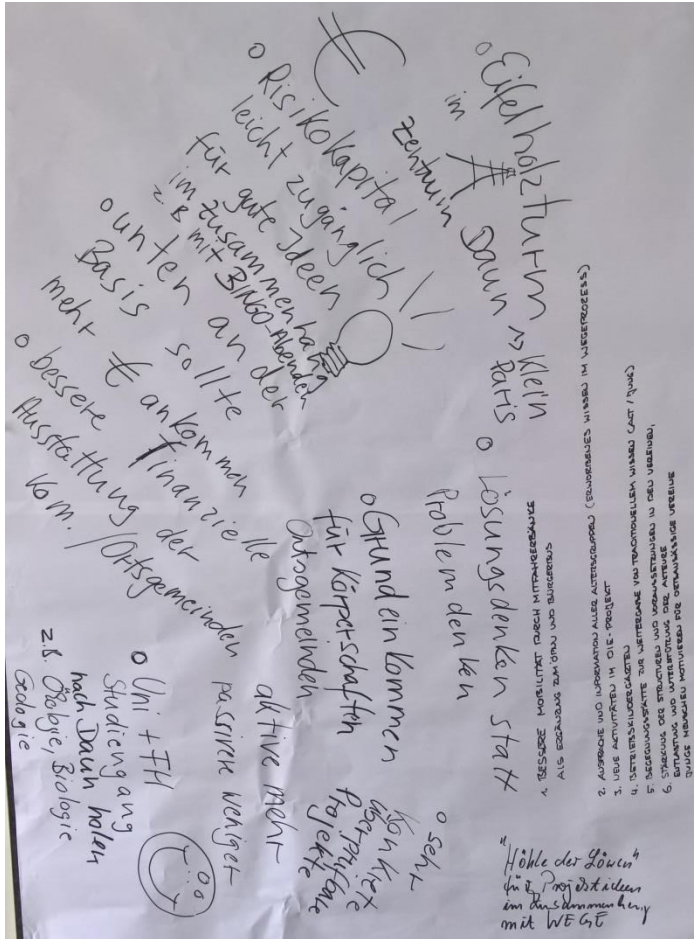 o Eifelholzturm
im
Zentrum Daun ~> Klein
Paris
€
o Risikokapital
leicht zugänglich
für gute Ideen
im Zusammenhang
z.B mit BINGO-Abenden
o unten an der
Basis sollte
mehr € ankommen
o bessere finanzielle
Ausstattung der
Kom./Ortsgemeinden
o Lösungsdenken statt
Problemdenken
o Grundeinkommen
für Körperschaften
Ortsgemeinden
aktive mehr
passivere weniger
o Uni + FH
Studiengang
nach Daun holen
z.B. Ökologie, Biologie
Geologie
o sehr
konkrete
überprüfbare
Projekte
1. BESSERE MOBILITÄT DURCH MITFAHRERBÄNKE
ALS ERGÄNZUNG ZUM ÖPNV UND BÜRGERBUS
2. ANSPRACHE UND INFORMATION ALLER ALTERSGRUPPEN (ERWORBENES WISSEN IM WEGEPROZESS)
3. NEUE AKTIVITÄTEN IM DIE-PROJEKT
4. BETRIEBSKINDERGÄRTEN
5. BEGEGNUNGSSTÄTTE ZUR WEITERGABE VON TRADITIONELLEM WISSEN (ALT / JUNG)
6. STÄRKUNG DER STRUKTUREN UND VORAUSSETZUNGEN IN DEN VEREINEN,
ENTLASTUNG UND UNTERSTÜTZUNG DER AKTEURE
JUNGE MENSCHEN MOTIVIEREN FÜR ORTSANSÄSSIGE VEREINE
"Höhle der Löwen"
für Projektideen
im Zusammenhang
mit WEGE